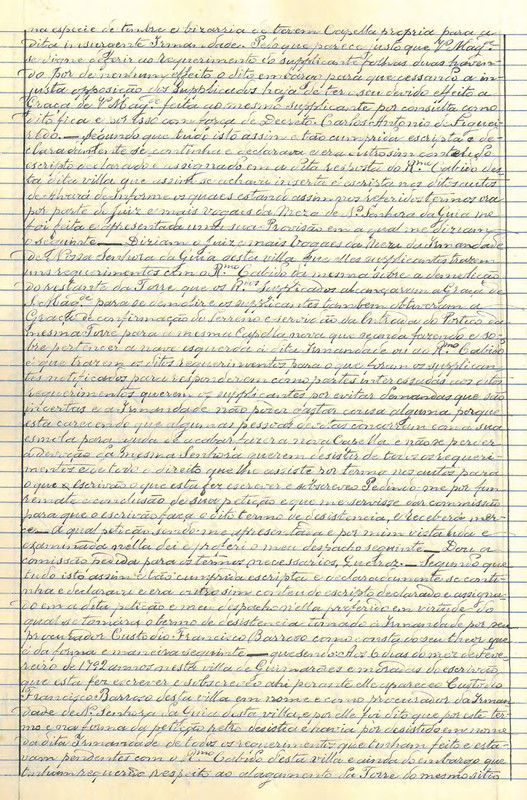 na especie de timbre e bizarria e terem Capella propria para a
dita insurgente Irmandade. Pelo que parece justo que V.ª Mag.e
se digne deferir ao requerimento do supplicante
do por de nenhum effeito o dito embargo para que cessando a in-
justa opposição dos Supplicados haja de ter seu devido effeito a
Graça de V.ª Mag.e feita ao mesmo supplicante por consulta como
dito fica e por isso com força de Decreto. Carlos Antonio de
Segundo que tudo isto assim e tão cumprida escripta e de-
claradamente se continha e declarava e era outrosim conteudo
escripto declarado e assignado em a dita resposta do R.mo Cabido des-
ta dita villa que assim se achava inserta e escripta nos ditos autos
de Alvará de informe os quaes estando assim nos referidos termos ora
por parte do Juiz e mais vogaes da Meza de N.ª Senhora da Guia me
foi feita e apresentada uma sua Provisão em a qual me diziam
o seguinte — Diziam o Juiz e mais Vogaes da Meza da Irmandade
de Nossa Senhora da Guia desta villa, que elles supplicantes trazem
uns requerimentos com o R.mo Cabido da mesma sobre a demolição
do restante da Torre que os R.mos supplicados alcançaram a Graça de
para se demolir e os supplicantes tambem obtiveram a
Graça de confirmação de terreno e servidão da Entrada do Portico da
mesma Torre para a mesma Capella nova que se anda fazendo e so-
bre pertencer a nova esquerda á dita Irmandade ou ao R.mo Cabido
é que trazem os ditos requerimentos para o que foram os supplican-
tes notificados para responderem como partes interessadas aos ditos
requerimentos querem os supplicantes por evitar demandas que são
incertas e a Irmandade não poder gastar cousa alguma porque
está carecendo que algumas pessoas devotas concorram com a sua
esmola para ajuda de acabar fazer a nova Capella e não se perder
a devoção da mesma Senhora querem desistir de todos os requeri-
mentos e de todo o direito que lhe assiste por termo nos autos para
o que o escrivão que esta fez escrever e sobscreveo. Pedindo-me por fim
remate e conclusão de sua petição e que me servisse dar commissão
para que o escrivão faça o dito termo de desistencia, e receberá mer-
ce — A qual petição sendo-me apresentada e por mim vista lida e
examinada nella dei e proferi o meu despacho seguinte — Dou a
comissão pedida para os termos necessarios, Queiroz — Segundo que
tudo isto assim e tão cumprida escripta e declaradamente se conti-
nha e declarava e era outro sim conteudo escripto declarado e assigna-
do em a dita petição e meu despacho nella proferido em virtude do
qual se tomára o termo de desistencia tomado á Irmandade por seu
procurador Custodio Francisco Barroso como consta do seu theor que
é da forma e maneira seguinte — que sendo Aos 6 dias do mez de Feve-
reiro de 1792 annos nesta villa de Guimarães e moradas de escrivão
que esta fez escrever e sobscreveo ahi perante elle appareceo Custodio
Francisco Barroso desta villa em nome e como procurador da Irman-
dade de N.ª Senhora da Guia desta villa, e por elle foi dito que por este ter-
mo e na forma da petição retro desistia e havia por desistido em nome
da dita Irmandade de todos os requerimentos que tinham feito e esta-
vam pendentes com o R.mo Cabido desta villa e ainda do embargo que
tinham requerido respeito ao alagamento da Torre do mesmo sitio